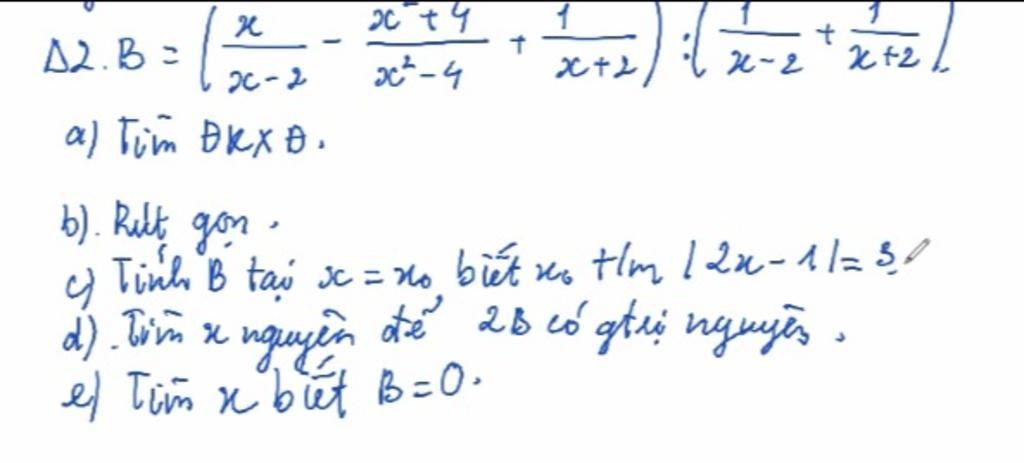 Δ2. B = ( x/(x-2) - (x²+4)/(x²-4) + 1/(x+2) ) : ( 1/(x-2) + 1/(x+2) ).
a) Tìm ĐKXĐ.
b). Rút gọn.
c) Tính B tại x = x₀, biết x₀ t/m |2x-1|=3.
d). Tìm x nguyên để 2B có gtrị nguyên.
e) Tìm x biết B=0.